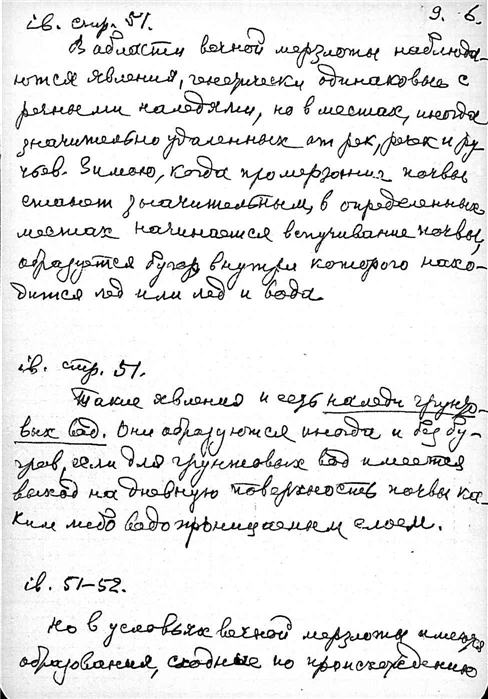 ib. стр. 51.
9. 6.
В области вечной мерзлоты наблюда-
ются явления, генетически одинаковые с
речными наледями, но в местах, иногда
значительно удаленных от рек, речек и ру
чьев. Зимою, когда промерзание почвы
станет значительным, в определенных
местах начинается вспучивание почвы,
образуется бугор внутри которого нахо-
дится лед или лед и вода
ib. стр. 51.
Такие явления и есть наледи грунто-
вых вод. Они образуются иногда и без бу-
гров, если для грунтовых вод имеется
выход на дневную поверхность почвы ка-
ким либо водопроницаемым слоем.
ib. 51-52.
Но в условьях вечной мерзлоты имеются
образования, сходные по происхождению